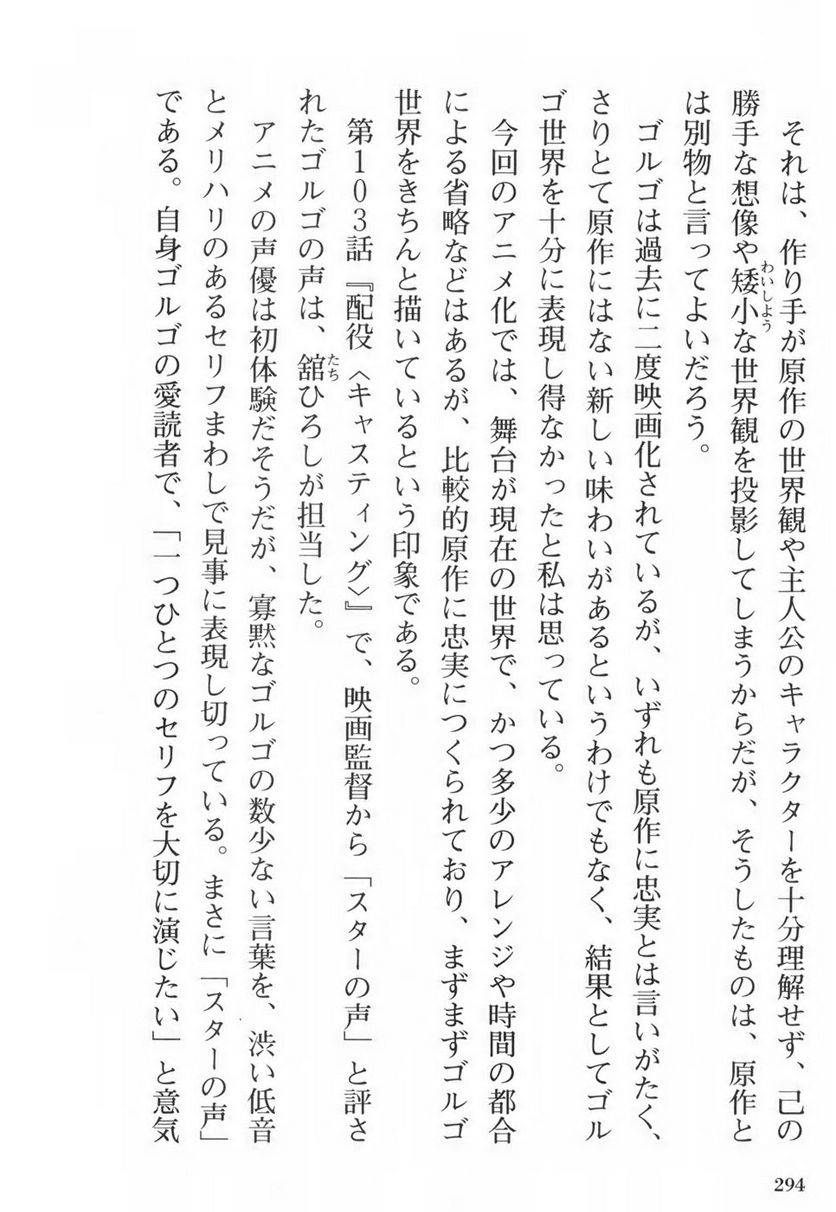 それは、作り手が原作の世界観や主人公のキャラクターを十分理解せず、己の
勝手な想像や矮小な世界観を投影してしまうからだが、そうしたものは、原作と
わいしよう
は別物と言ってよいだろう。
ゴルゴは過去に二度映画化されているが、いずれも原作に忠実とは言いがたく、
さりとて原作にはない新しい味わいがあるというわけでもなく、結果としてゴル
ゴ世界を十分に表現し得なかったと私は思っている。
今回のアニメ化では、舞台が現在の世界で、かつ多少のアレンジや時間の都合
による省略などはあるが、比較的原作に忠実につくられており、まずまずゴルゴ
世界をきちんと描いているという印象である。
第103話『配役〈キャスティング〉』で、映画監督から「スターの声」と評さ
れたゴルゴの声は、舘ひろしが担当した。
たち
アニメの声優は初体験だそうだが、寡黙なゴルゴの数少ない言葉を、渋い低音
とメリハリのあるセリフまわしで見事に表現し切っている。まさに「スターの声」
である。自身ゴルゴの愛読者で、「一つひとつのセリフを大切に演じたい」と意気
294